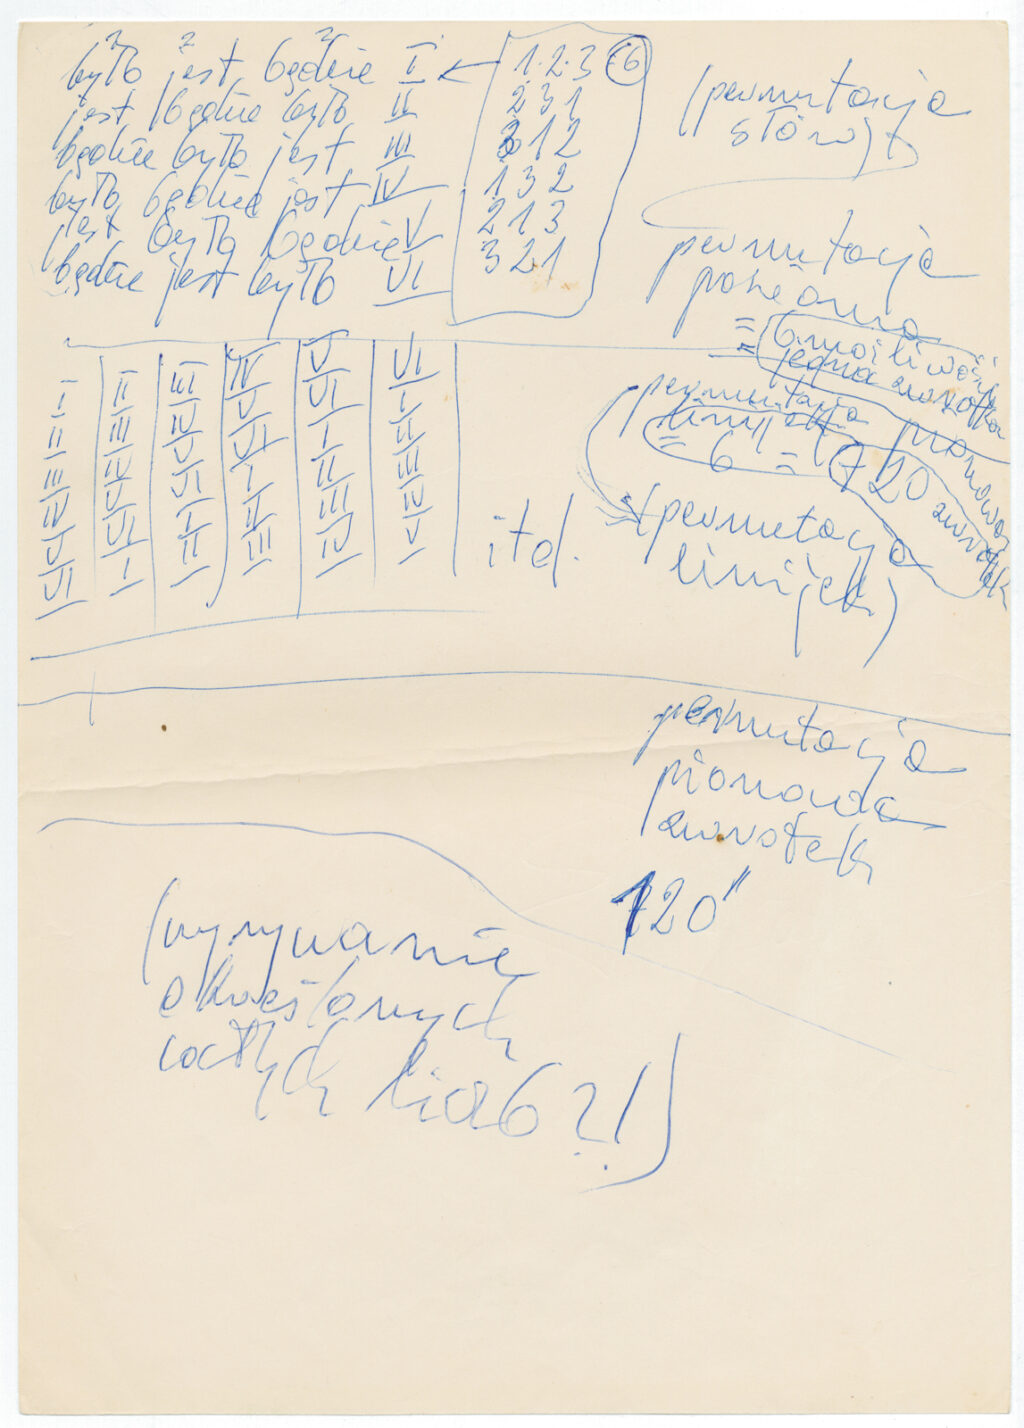 było jest będzie I
jest będzie było II
będzie było jest III
było będzie jest IV
jest było będzie V
będzie jest było VI
1 2 3 (6)
2 3 1
3 1 2
1 3 2
2 1 3
3 2 1
(permutacja
słów)
permutacja
pozioma
= 6 możliwości
= jedna zwrotka
permutacja pionowa
linijek
= 6 = 720 zwrotek
(permutacja
linijek)
I II III IV V VI
II III IV V VI I
III IV V VI I II
IV V VI I II III
V VI I II III IV
VI I II III IV V
itd.
permutacja
pionowa
zwrotek
720"
(wyrywanie
określonych
całych liczb?!)